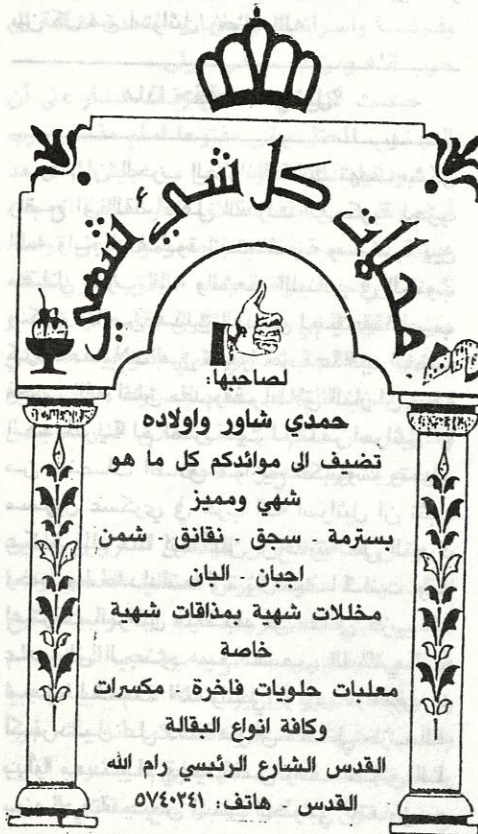 محلات كل شيء شهي
لصاحبها:
حمدي شاور واولاده
تضيف الى موائدكم كل ما هو
شهي ومميز
بسترمة - سجق - نقانق - شمن
اجبان - البان
مخللات شهية بمذاقات شهية
خاصة
معلبات حلويات فاخرة - مكسرات
وكافة انواع البقالة
القدس الشارع الرئيسي رام الله
القدس . هاتف: ٥٧٤٠٢٤١